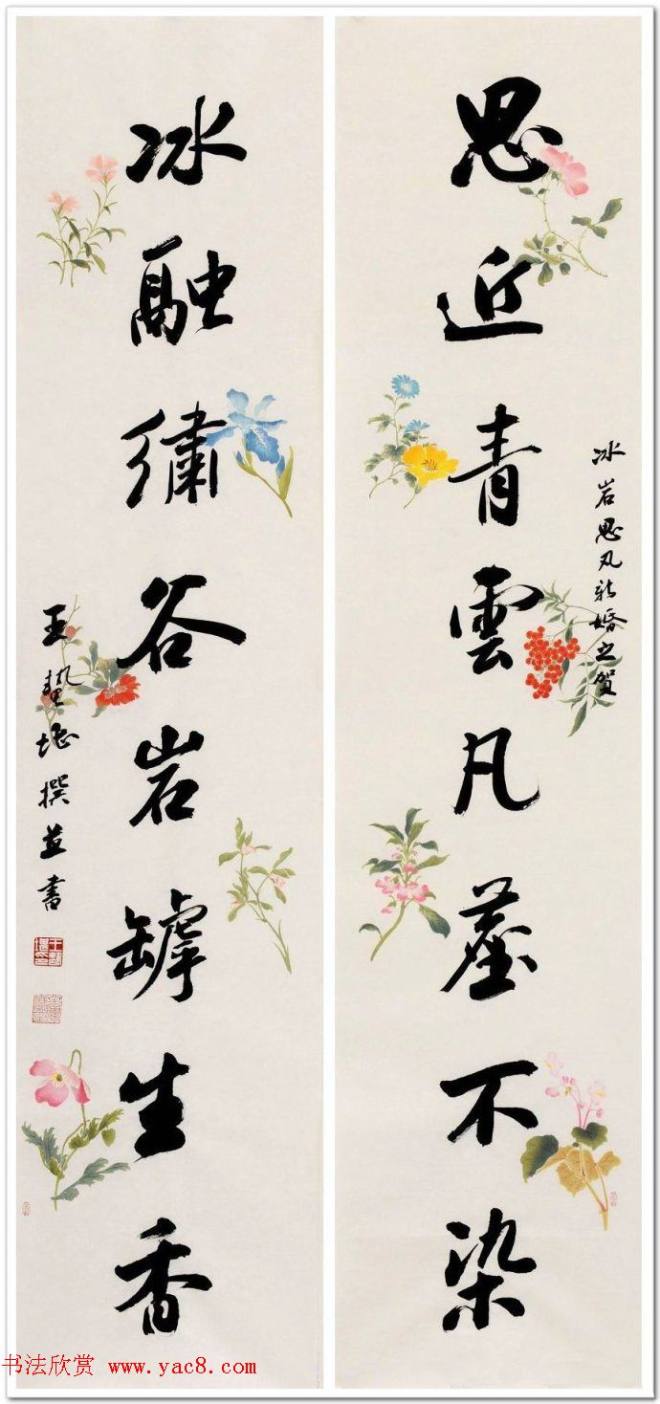 冰岩思凡新婚之贺
思近青雲凡塵不染
冰融繡谷岩罅生香
王蟄堪撰並書
书法欣赏 www.yac8.com